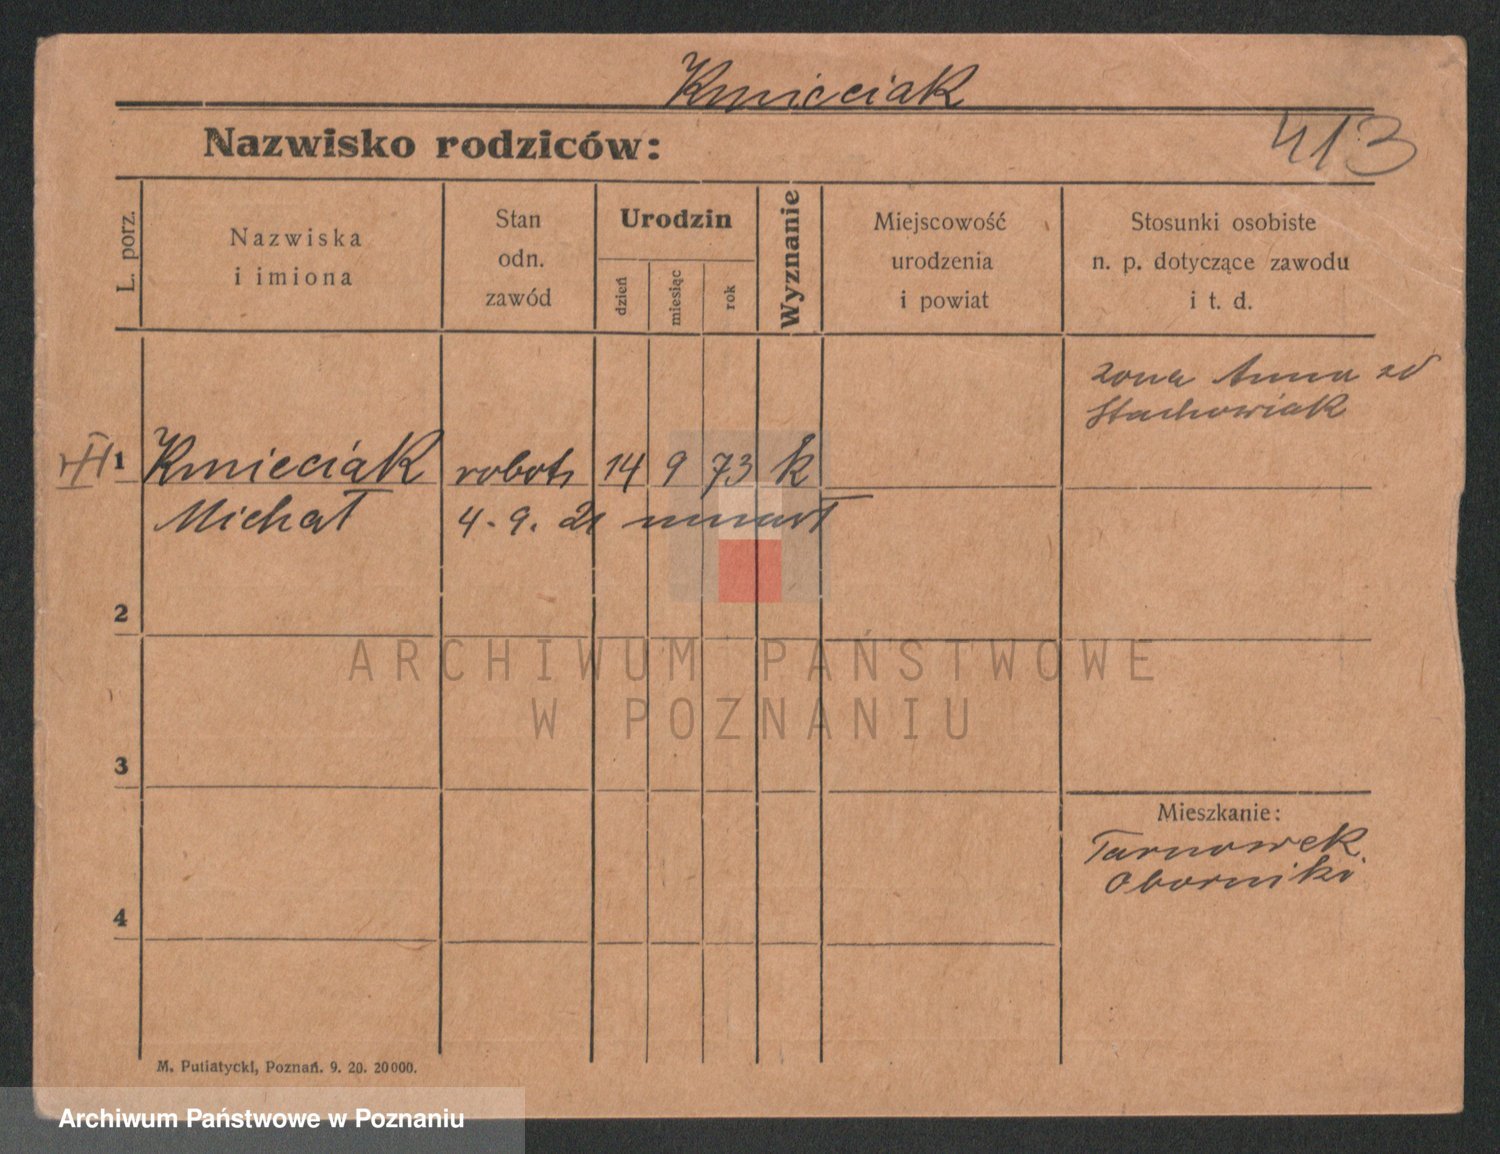 Kmieciak
Nazwisko rodziców:
413
L. porz.
Nazwiska
i imiona
Stan
odn.
zawód
Urodzin
dzień
miesiąc
rok
Wyznanie
Miejscowość
urodzenia
i powiat
Stosunki osobiste
n. p. dotyczące zawodu
i t. d.
żona Anna zd
Stachowiak
1 Kmieciak robotn 14 9 73 k
Michał 4. 9. 21 umarł
2
3
4
Mieszkanie:
Tarnowek
Oborniki
M. Putiatycki, Poznań. 9. 20. 20000.
ARCHIWUM PAŃSTWOWE
W POZNANIU
Archiwum Państwowe w Poznaniu